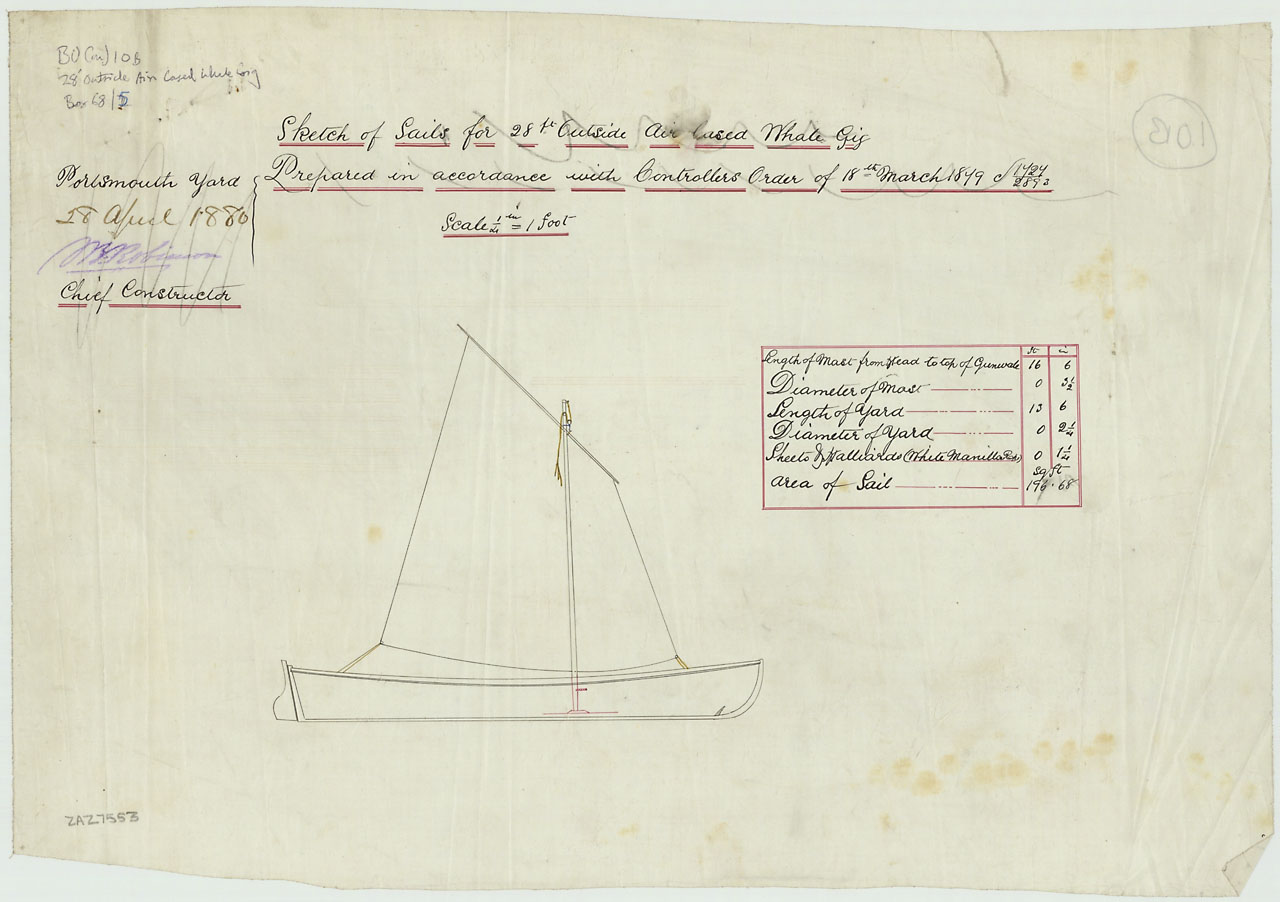 BO(m) 10B
28' Outside Air Cased Whale Gig
Box 68/5
10B
Sketch of Sails for 28 ft Outside Air Cased Whale Gig
Prepared in accordance with Controllers Order of 18th March 1879
Scale 1/4 in = 1 foot
Portsmouth Yard
28 April 1880
Robinson
Chief Constructor
ft in
Length of Mast from Head to top of Gunwale 16 6
Diameter of Mast 0 3 1/2
Length of Yard 13 6
Diameter of Yard 0 2 1/4
Sheets & Halliards (White Manilla) 0 1 1/4
sq ft
Area of Sail 196.68
ZAZ7553